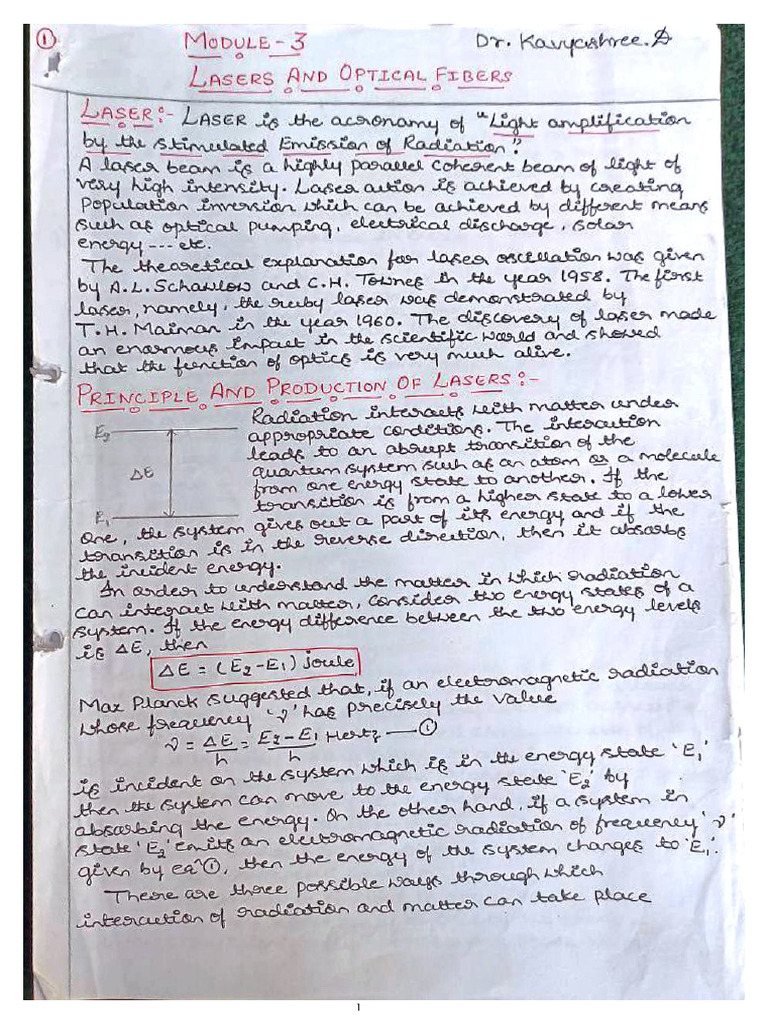 1
MODULE-3
Dr. Kavyashree.D
LASERS AND OPTICAL FIBERS
LASER:- LASER is the acronamy of "Light amplification
by the stimulated Emission of Radiation".
A laser beam is a highly parallel coherent beam of light of
very high intensity. Laser action is achieved by creating
population inversion which can be achieved by different means
such as optical pumping, electrical discharge, solar
energy --- etc.
The theoretical explanation for laser oscellation was given
by A.L. Schawlow and C.H. Townes in the year 1958. The first
laser, namely, the ruby laser was demonstrated by
T.H. Maiman in the year 1960. The discovery of laser made
an enarmous impact in the scientific world and showed
that the function of optics is very much alive.
PRINCIPLE AND PRODUCTION OF LASERS:-
Radiation interacts with matter under
appropriate conditions. The interaction
leads to an abrupt transition of the
quantum system such as an atom or a molecule
from one energy state to another. If the
transition is from a higher state to a lower
E2
ΔE
E1
one, the system gives out a part of its energy and if the
transition is in the reverse direction, then it absorbs
the incident energy.
In order to understand the matter in which radiation
can interact with matter, consider two energy states of a
system. If the energy difference between the two energy levels
is ΔE, then
ΔE = (E2-E1) joule
Max Planck suggested that, if an electromagnetic radiation
whose frequency 'ν' has precisely the value
ν = ΔE/h = E2-E1/h Hertz —— ①
is incident on the system which is in the energy state 'E1'
then the system can move to the energy state 'E2' by
absorbing the energy. On the other hand, if a system in
state 'E2' emits an electromagnetic radiation of frequency 'ν'
given by eqn ①, then the energy of the system changes to 'E1'.
There are three possible ways through which
interaction of radiation and matter can take place
1